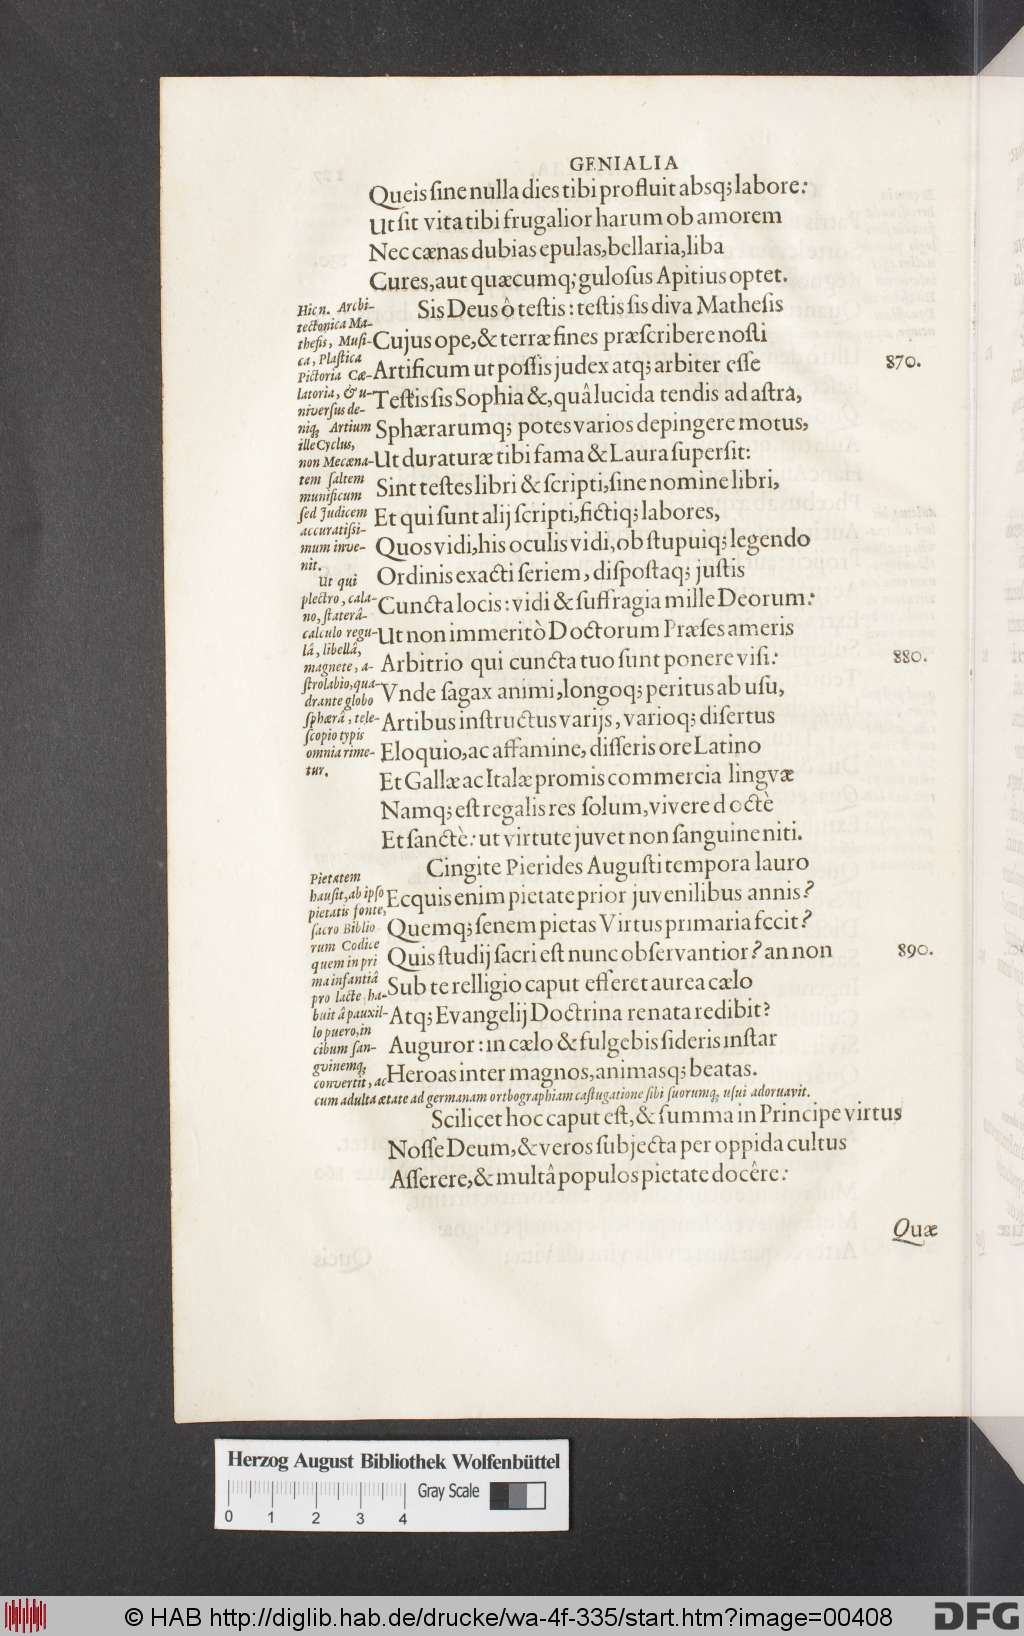 GENIALIA
Queis ſine nulla dies tibi profluit absq; labore:
Ut ſit vita tibi frugalior harum ob amorem
Nec cænas dubias epulas, bellaria, liba
Cures, aut quæcumq; guloſus Apitius optet.
Sis Deus ô teſtis: teſtis ſis diva Matheſis
Cujus ope, & terræ fines præſcribere noſti
Artificum ut poſſis judex atq; arbiter eſſe
870.
Teſtis ſis Sophia &, quâ lucida tendis ad aſtra,
Sphærarumq; potes varios depingere motus,
Ut duraturæ tibi fama & Laura ſuperſit:
Sint teſtes libri & ſcripti, ſine nomine libri,
Et qui ſunt alij ſcripti, fictiq; labores,
Quos vidi, his oculis vidi, obſtupuiq; legendo
Ordinis exacti ſeriem, diſpoſtaq; juſtis
Cuncta locis: vidi & ſuffragia mille Deorum:
Ut non immeritò Doctorum Præſes ameris
Arbitrio qui cuncta tuo ſunt ponere viſi:
880.
Vnde ſagax animi, longoq; peritus ab uſu,
Artibus inſtructus varijs, varioq; diſertus
Eloquio, ac affamine, diſſeris ore Latino
Et Gallæ ac Italæ promis commercia lingvæ
Namq; eſt regalis res ſolum, vivere doctè
Et ſanctè: ut virtute juvet non ſanguine niti.
Cingite Pierides Auguſti tempora lauro
Ecquis enim pietate prior juvenilibus annis?
Quemq; ſenem pietas Virtus primaria fecit?
Quis ſtudij ſacri eſt nunc obſervantior? an non
890.
Sub te relligio caput efferet aurea cælo
Atq; Evangelij Doctrina renata redibit?
Auguror: in cælo & fulgebis ſideris inſtar
Heroas inter magnos, animasq; beatas.
Scilicet hoc caput eſt, & ſumma in Principe virtus
Noſſe Deum, & veros ſubjecta per oppida cultus
Aſſerere, & multâ populos pietate docêre:
Quæ
Hic n. Archi-
tectonica Ma-
theſis, Muſi-
ca, Plaſtica
Pictoria Cæ-
latoria, & u-
niverſus de-
niq, Artium
ille Cyclus,
non Mecæna-
tem ſaltem
munificum
ſed Judicem
accuratiſſi-
mum inve-
nit.
Ut qui
plectro, cala-
no, ſtaterâ-
calculo regu-
lâ, libellâ,
magnete, a-
ſtrolabio, qua-
drante globo
ſphærâ, tele-
ſcopio typis
omnia rime-
tur.
Pietatem
hauſit, ab ipſo
pietatis fonte,
ſacro Biblio
rum Codice
quem in pri
ma infantiâ
pro lacte ha-
buit â pauxil-
lo puero, in
cibum ſan-
gvinemq,
convertit, ac
cum adulta ætate ad germanam orthographiam caſtugatione ſibi ſuorumq, uſui adornavit.
Herzog August Bibliothek Wolfenbüttel
Gray Scale
0 1 2 3 4
© HAB http://diglib.hab.de/drucke/wa-4f-335/start.htm?image=00408
DFG